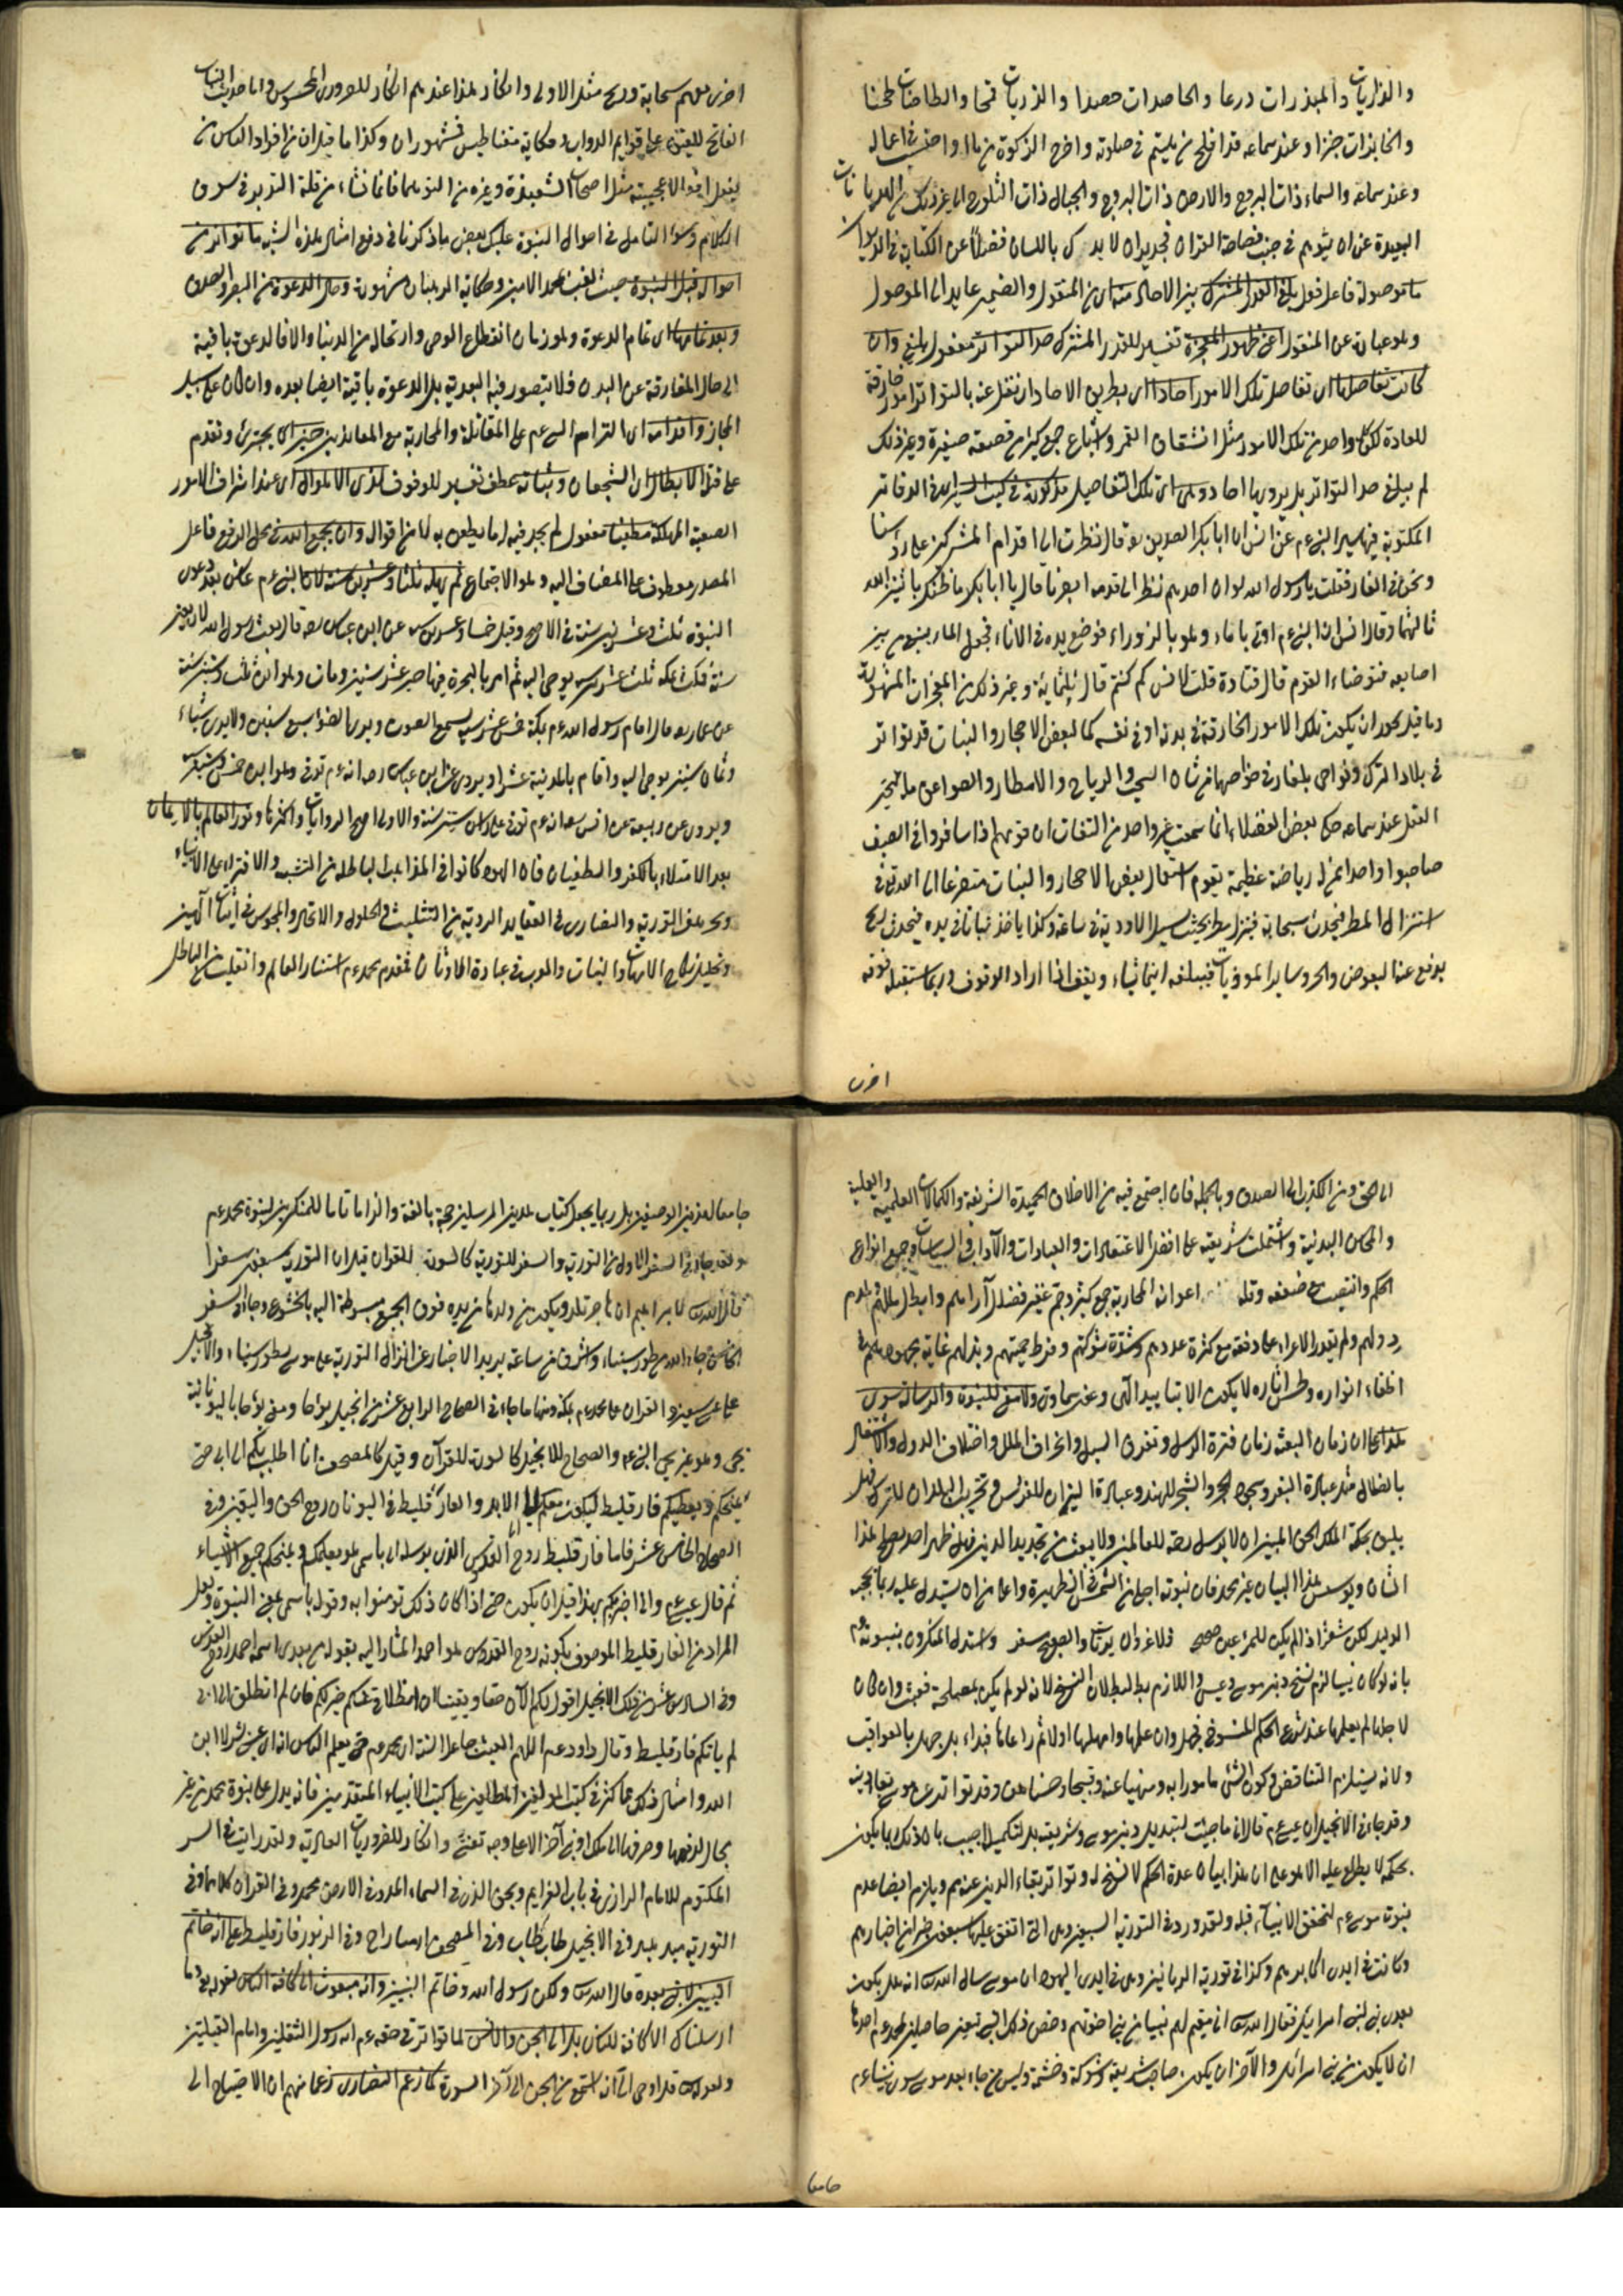 والذاريات والمبذرات درعا والحاصدات حصدا والذريات قمحا والطاحنات طحنا
والخابزات خبزا وعند سماعه قد افلح من في صلوته واخرج الزكوة من ماله
وعند سماعه والسماء ذات البروج والارض ذات المروج والجبال ذات الثلوج الى غير ذلك من
البعيدة عن ان في جنب فصاحة القران فجدير ان لا باللسان فضلا عن الكتابة في
ما موصولة فاعل فعل يبلغ القدر المشترك بين الاحاد منه اى من المنقول والضمير عايد الى الموصول
وهو عبارة عن المنقول اعنى ظهور المعجزة تفسير للقدر المشترك حد التواتر مفعول يبلغ وان
كانت تفاصيلها اى تفاصيل تلك الامور احادا اى بطريق الاحاد اذ نقل عنه بالتواتر امور خارقة
للعادة لكن كل واحد من تلك الامور مثل انشقاق القمر واشباع جمع كثير من قصعة صغيرة وغير ذلك
لم يبلغ حد التواتر بل يرويها احاد وهى اى تلك التفاصيل مذكورة في كتب السير اى في الدفاتر
المكتوبة فيها سير النبى عم عن انس ان ابا بكر الصديق رضه قال نظرت الى اقدام المشركين على رؤسنا
ونحن في الغار فقلت يا رسول الله لو ان احدهم نظر الى قدمه ابصرنا فقال يا ابا بكر ما ظنك باثنين الله
ثالثهما وقال انس ان النبى عم اوتى باناء وهو بالزوراء فوضع يده في الاناء فجعل الماء ينبع من بين
اصابعه فتوضاء القوم قال قتادة قلت لانس كم كنتم قال ثلثمائة وغير ذلك من المعجزات المشهورة
وما قيل يجوز ان يكون تلك الامور الخارقة في بدنه او في نفسه كما لبعض الاحجار والنبات قد تواتر
في بلاد الترك ونواحى بلغار في خواصها من شان السحب والرياح والامطار والصواعق ما يتحير
العقل عند سماعه حكى بعض الفضلاء انما سمعت غير واحد من الثقات ان قومهم اذا سافروا في الصيف
صاحبوا واحدا منهم له رياضة عظيمة يقوم استعمال بعض الاحجار والنبات متضرعا الى الله تع في
استنزال المطر فيحدث سحابة فينزل مطر بحيث يسيل الاودية في ساعة وكذا ياخذ نباتا في يده فيحدث ريح
يدفع عنه البعوض والحر وساير الموذيات فيبلغه اينما شاء ويقف اذا اراد الوقوف وربما يستقبله قوته
اخرى
اخرى معهم سحابة وريح مثل الاولى وانكار هذا عندهم انكار للضرورى المحسوس واما حديث النبات
الفاتح للقيد على قوايم الدواب وحكاية مغناطيس فمشهوران وكذا ما قيل ان من افراد الناس من
يفعل افعالا عجيبة مثل اصحاب الشعبذة وغيره من التوهما فانما نشاء من قلة التدبر في سوق
الكلام وسوء التامل في احوال النبوة عليك ببعض ما ذكرنا في دفع امثال هذه الشبه ما تواتر من
احواله قبل النبوة حيث لقب محمد الامين وحكاية الرهبان مشهورة وحال الدعوة من الصبر والصدق
وبعد تمامها اى تمام الدعوة وهو زمان انقطاع الوحى وارتحاله من الدنيا والا فالدعوة باقية
الى حال المفارقة عن البدن فلا يتصور فيه البعدية بل الدعوة باقية ايضا بعده وان كان على سبيل
المجاز واقدامه اى التزامه السلام على المقاتلة والمحاربة مع المعاندين حيث يجترئ وتقدم
على قتل الابطال اى الشجعان وثباته عطف تفسير للوقوف لدى الاهوال اى عند اشراف الامور
الصعبة المهلكة مطعنا مفعول لم يجد فيه اى ما يطعن به من اقواله وان يجمع الله في محل الرفع فاعل
المصدر معطوف على المضاف اليه وهو الاجتماع ثم يمهله ثلثا وعشرين سنة لان النبى عم عاش بعد دعوى
النبوة ثلث وعشرين سنة في الاصح وقيل خمسا وعشرين سنة عن ابن عباس رضه قال بعث رسول الله لاربعين
سنة فمكث بمكة ثلث عشرة سنة يوحى اليه ثم امر بالهجرة فهاجر عشر سنين ومات وهو ابن ثلث وستين سنة
عن ابن عباس رضه قال اقام رسول الله عم بمكة خمس عشرة سنة يسمع الصوت ويرى الضوء سبع سنين ولا يرى شياء
وثمان سنين يوحى اليه واقام بالمدينة عشرا ويروى عن ابن عباس رضه انه عم توفى وهو ابن خمس وستين
ويروى عن ربيعة عن انس رضه انه عم توفى على راس ستين سنة والاول اصح الروايات واكثرها ونور العالم بالايمان
بعد الامتلاء بالكفر والطغيان فان اليهود كانوا في المذاهب الباطلة من التشبيه والافتراء على الانبياء
وتحريف التورية والنصارى في العقايد الردية من التثليث والحلول والاتحاد والمجوس في اثبات الهين
وتحليل نكاح الامهات والبنات والعرب في عبادة الاوثان فبقدم محمد عم استنار العالم وانقلبت من الباطل
الى الحق ومن الكذب الى الصدق وبالجملة فان اجتمع فيه من الاخلاق الحميدة الشريفة والكمالات العلمية والعملية
والمحاسن البدنية واشتملت شريعته على افضل الاعتقادات والعبادات والآداب والسياسات وجميع انواع
الحكم وانتصب مع ضعفه وقلة اعوانه لمحاربة جمع كثير وجم غفير فضلل آراءهم وابطل مللهم وهدم
دولهم ولم يقدر الاعداء على دفعه مع كثرة عددهم وشدة شوكتهم وفرط حميتهم وبذلهم غاية مجهودهم في
اطفاء انواره وطمس اثاره لا يكون الا بتاييد الهى وعند سماوى ولا معنى للنبوة والرسالة سوى
هذا على ان زمان البعثة زمان فترة الرسل وتفرق السبل وانحراف الملل واختلاف الدول والاشتغال
بالضلال مثل عبادة البقر وسجود الحجر والشجر للهند وعبادة النيران للفرس وتخريب البلدان للترك فهل
يليق بحكمة الملك الحق المبين ان لا يرسل رحمة للعالمين ولا يبعث من يجدد الدين فهل ظهر احد يصلح لهذا
الشان ويوسس هذا البنيان غير محمد فان نبوته اجلى من الشمس في الظهيرة واعلى من ان يستدل عليه ربما يجحد
الوليد لكن شعر اذا لم يكن للمرء عين صحيحة فلا غرو ان يرتاب والصبح مسفر واستدل المنكرون بنبوته عم
بانه لو كان نبيا لزم نسخ دين موسى وعيسى واللازم باطل لبطلان النسخ لانه لو لم يكن لمصلحة فعبث وان كان
لاجلها لم يعلمها عند شرع الحكم المنسوخ فجهل وان علمها واهملها اولا ثم راعاها فبداء بل جهل بالعواقب
ولانه يستلزم التناقض وكون الشئ مامورا به ومنهيا عنه وقبيحا وحسنا معا وقد تواتر عن موسى تعاليه
وقد جاء في الانجيل ان عيسى عم قال انى ما جئت لتبديل دين موسى وشريعته بل لتكميله اجيب بان ذلك ربما يكون
بحكمة لا يطلع عليه الا هو على ان هذا بيان مدة الحكم لا نسخ له وتواتر بقاء الدين عنهم ويلزم ايضا عدم
نبوة موسى عم لتحقق الانبياء قبله ولقد ورد في التورية السبعين وهى التى اتفق عليها سبعون حبرا من احبارهم
وكانت في ايدى اكابرهم وكذا في تورية الربانيين وهى في ايدى اليهود ان موسى سال الله انه هل يكون
بعدى نبى لبنى اسرائيل فقال الله تع انى مقيم لهم نبيا من بنى اخوتهم وخص ذلك النبى بمعنيين حاصلين لمحمد عم احدهما
ان لا يكون من بنى اسرائيل والآخر ان يكون صاحب شريعة وشوكة وحشمة وليس من جاء بعد موسى سوى نبينا عم
جامعا
جامعا لهذين الوصفين بل ربما يجعل كتاب هدين المرسلين حجة بالغة والزاما تاما للمنكرين لنبوة محمد عم
ولقد جاء في السفر الاول من التورية والسفر للتورية كالسورة للقران قيل ان التورية سبعون سفرا
قال الله تع لابراهيم ان هاجر تلد ويكون من ولدها من يده فوق الجميع مبسوطة اليه بالخشوع وجاء في السفر
الخامس جاء الله من طور سيناء واشرق من ساعير يريد الاخبار عن انزال التورية على موسى بطور سيناء والانجيل
على عيسى بساعير والقران على محمد عم بمكة ومنها ما جاء في الصحاح الرابع عشر من انجيل يوحنا ومعنى يوحنا باليونانية
يحيى وهو غير يحيى النبى عم والصحاح للانجيل كالسورة للقرآن وقيل كالمصحف انا اطلب لكم الى ابى حتى
يمنحكم ويعطيكم فارقليط ليكون معكم الى الابد والفارقليط في اليونان روح الحق واليقين وفي
الصحاح الخامس عشر فاما فارقليط روح القدس الذى يرسله ابى باسمى هو يعلمكم ويمنحكم جميع الاشياء
ثم قال عيسى عم وانى اخبرتكم بهذا قبل ان يكون حتى اذا كان ذلك تومنوا به وقوله باسمى يعنى النبوة وقيل
المراد من الفارقليط الموصوف بكونه روح القدس هو احمد المشار اليه بقوله من بعدى اسمه احمد روح القدس
وفي السادس عشر من ذلك الانجيل اقول لكم الآن حقا ويقينا ان انطلاقى عنكم خير لكم فان لم انطلق الى ابى
لم ياتكم فارقليط وقال داود عم اللهم ابعث جاعل السنة اى محمد عم حتى يعلم الناس انه اى عيسى بشر لا ابن
الله وامثال ذلك مما كثر في كتب الموثقين المطالعين على كتب الانبياء المتقدمين فانه يدل على نبوة محمد من غير
مجال لدفعها وصرفها الى ملك او نبى آخر الا على وجه تعنت وانكار للضروريات العادية ولقد رايت في السر
المكتوم للامام الرازى في باب العزايم وبحق الذى في السماء احمد وفي الارض محمد وفي القران كلاهما وفي
التورية ميد ميد وفي الانجيل طاب طاب وفي الصحف وفي الزبور فارقليط على انه خاتم
النبيين لا نبى بعده قال الله تع ولكن رسول الله وخاتم النبيين وانه مبعوث الى كافة الناس لقوله تع وما
ارسلناك الا كافة للناس بل الى الجن والانس لما تواتر في حقه عم انه رسول الثقلين وامام القبلتين
ولقوله تع قل اوحى الى انه استمع نفر من الجن الى آخر السورة كما زعم النصارى زعما منهم ان الاحتياج الى